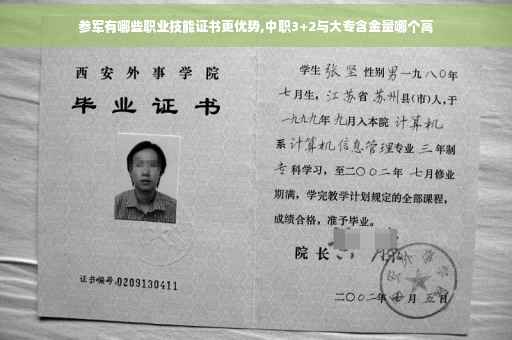 参军有哪些职业技能证书更优势,中职3+2与大专含金量哪个高
西安外事学院
毕业证书
证书编号:0209130411
学生张坚性别男一九八〇年
七月生,江苏省苏州县(市)人,于
一九九九年九月入本院计算机
系计算机信息管理专业三年制
专科学习,至二〇〇二年七月修业
期满,学完教学计划规定的全部课程,
成绩合格,准予毕业。
院长
二〇〇二年 月五日